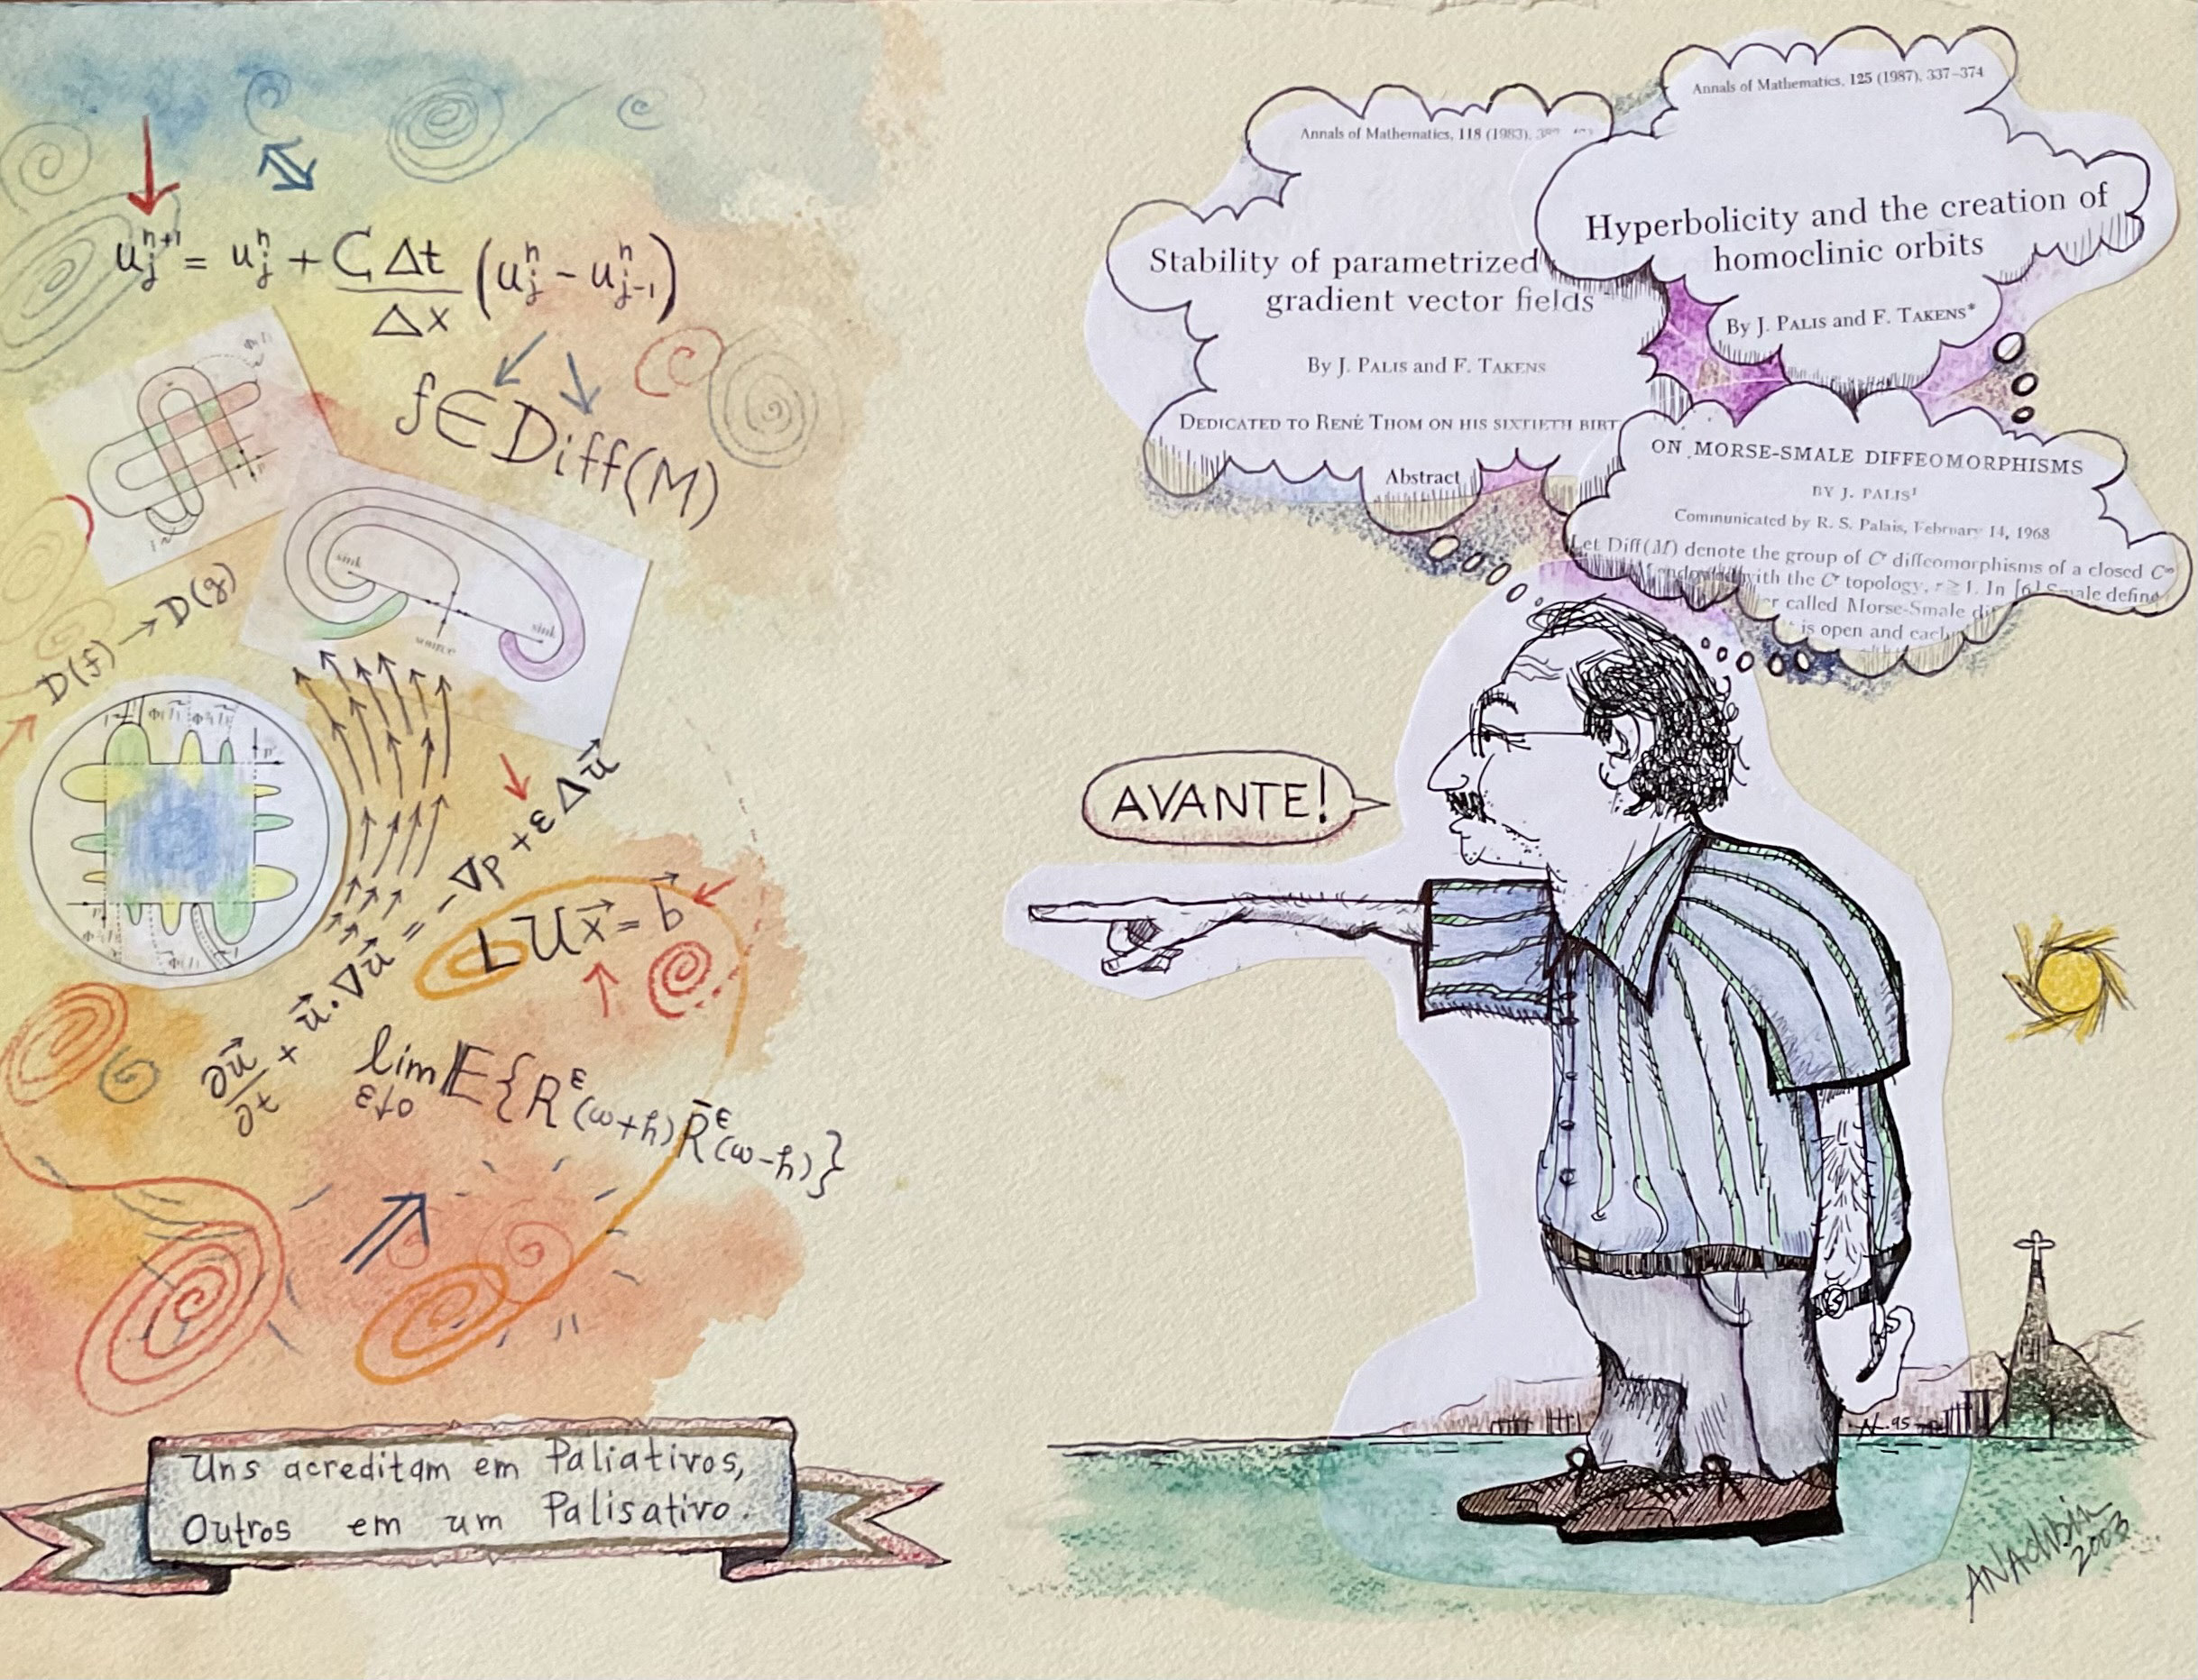 u_j^{n+1} = u_j^n + C Δt / Δx (u_j^n - u_{j-1}^n)
f ∈ Diff(M)
D(f) → D(g)
sink
source
sink
∂u⃗/∂t + u⃗·∇u⃗ = -∇p + εΔu⃗
LUx⃗ = b⃗
lim ε↓0 𝔼{R^ε(ω+h) R̄^ε(ω-h)}
Uns acreditam em Paliativos,
Outros em um Palisativo.
Annals of Mathematics, 118 (1983),
Stability of parametrized
gradient vector fields
By J. PALIS and F. TAKENS
DEDICATED TO RENÉ THOM ON HIS SIXTIETH BIRT
Abstract
Annals of Mathematics, 125 (1987), 337–374
Hyperbolicity and the creation of
homoclinic orbits
By J. PALIS and F. TAKENS*
ON MORSE-SMALE DIFFEOMORPHISMS
BY J. PALIS¹
Communicated by R. S. Palais, February 14, 1968
Let Diff(M) denote the group of C^r diffeomorphisms of a closed C^∞
with the C^r topology, r≧1. In [6] Smale define
called Morse-Smale
is open and each
AVANTE!
95
2003